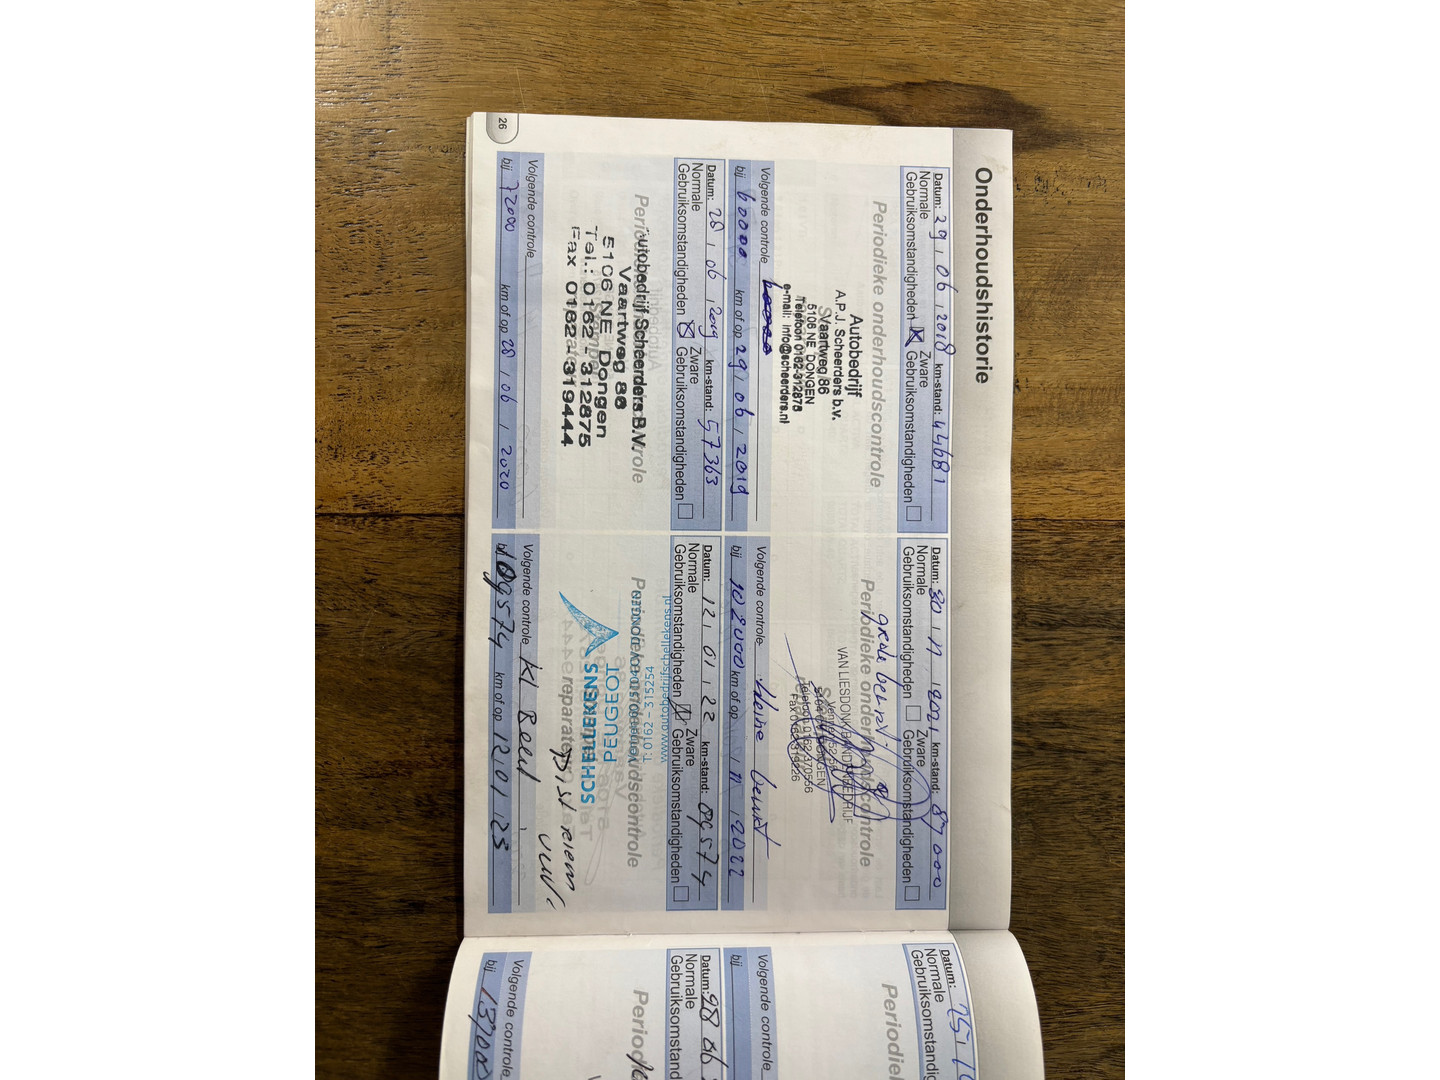 Onderhoudshistorie
Datum: 29 , 06 , 2018 km-stand: 44681
Normale Zware
Gebruiksomstandigheden Gebruiksomstandigheden
Periodieke onderhoudscontrole
Autobedrijf
A.P.J. Scheerders b.v.
Vaartweg 86
5106 NE DONGEN
Telefoon 0162-312875
e-mail: info@scheerders.nl
Volgende controle
bij 60000 km of op 29 , 06 , 2019
Datum: 28 , 06 , 2019 km-stand: 57363
Normale Zware
Gebruiksomstandigheden Gebruiksomstandigheden
Periodieke onderhoudscontrole
Autobedrijf Scheerders B.V.
Vaartweg 86
5106 NE Dongen
Tel.: 0162-312875
Fax 0162-319444
Volgende controle
bij 72000 km of op 28 , 06 , 2020
26
Datum: 30 , 11 , 2021 km-stand: 87000
Normale Zware
Gebruiksomstandigheden Gebruiksomstandigheden
Periodieke onderhoudscontrole
grote beurt.
VAN LIESDONK BANDENBEDRIJF
DONGEN
Volgende controle kleine beurt
bij 102000 km of op 11 , 2022
Datum: 12 , 01 , 22 km-stand: 89574
Normale Zware
Gebruiksomstandigheden Gebruiksomstandigheden
Periodieke onderhoudscontrole
www.autobedrijfschellekens.nl
T: 0162 - 315254
PEUGEOT
SCHELLEKENS
reparateur
Distriem
vuv.
Volgende controle Kl Beurt
bij 109574 km of op 12 , 01 , 23
Datum: 25,
Normale
Gebruiksomstandig
Periodiek
Volgende controle
bij
Datum: 28 06
Normale
Gebruiksomstand
Period
Volgende controle
bij 137000